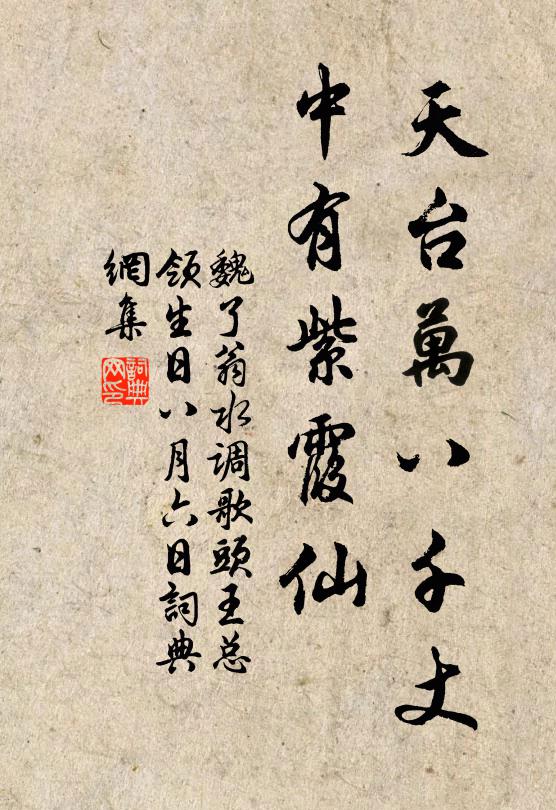 天台萬八千丈
中有紫霞仙
魏了翁水调歌頭王总
领生日八月六日詞典
網集
詞典
网印